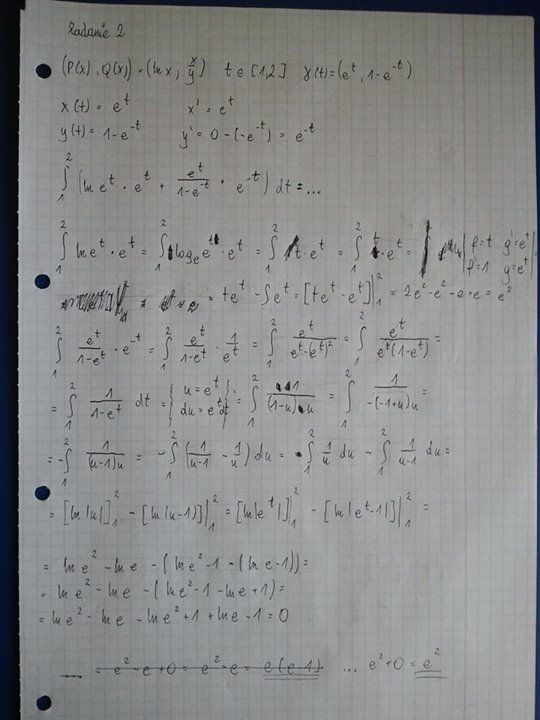 Zadanie 2
(P(x), Q(x)) = (ln x, x/y) t ∈ [1,2] γ(t) = (e^t, 1-e^-t)
x(t) = e^t x' = e^t
y(t) = 1-e^-t y' = 0-(-e^-t) = e^-t
∫_1^2 (ln e^t · e^t + e^t/(1-e^-t) · e^-t) dt = ...
∫_1^2 ln e^t · e^t = ∫_1^2 log_e e^t · e^t = ∫_1^2 t · e^t = ∫_1^2 t · e^t = | f=t g'=e^t |
f'=1 g=e^t
= te^t - ∫e^t = [te^t - e^t]|_1^2 = 2e^2 - e^2 - e + e = e^2
∫_1^2 e^t/(1-e^t) · e^-t = ∫_1^2 e^t/(1-e^t) · 1/e^t = ∫_1^2 e^t/(e^t-(e^t)^2) = ∫_1^2 e^t/(e^t(1-e^t)) =
= ∫_1^2 1/(1-e^t) dt = { u=e^t
du=e^t dt } = ∫_1^2 1/((1-u)u) = ∫_1^2 1/(-(-1+u)u) =
= -∫_1^2 1/((u-1)u) = -∫_1^2 (1/(u-1) - 1/u) du = ∫_1^2 1/u du - ∫_1^2 1/(u-1) du =
= [ln|u|]_1^2 - [ln|u-1)]|_1^2 = [ln|e^t|]_1^2 - [ln|e^t-1|]|_1^2 =
= ln e^2 - ln e - (ln e^2 - 1 - (ln e - 1)) =
= ln e^2 - ln e - (ln e^2 - 1 - ln e + 1) =
= ln e^2 - ln e - ln e^2 + 1 + ln e - 1 = 0
... = e^2 - e + 0 = e^2 - e = e(e-1) ... e^2 + 0 = e^2